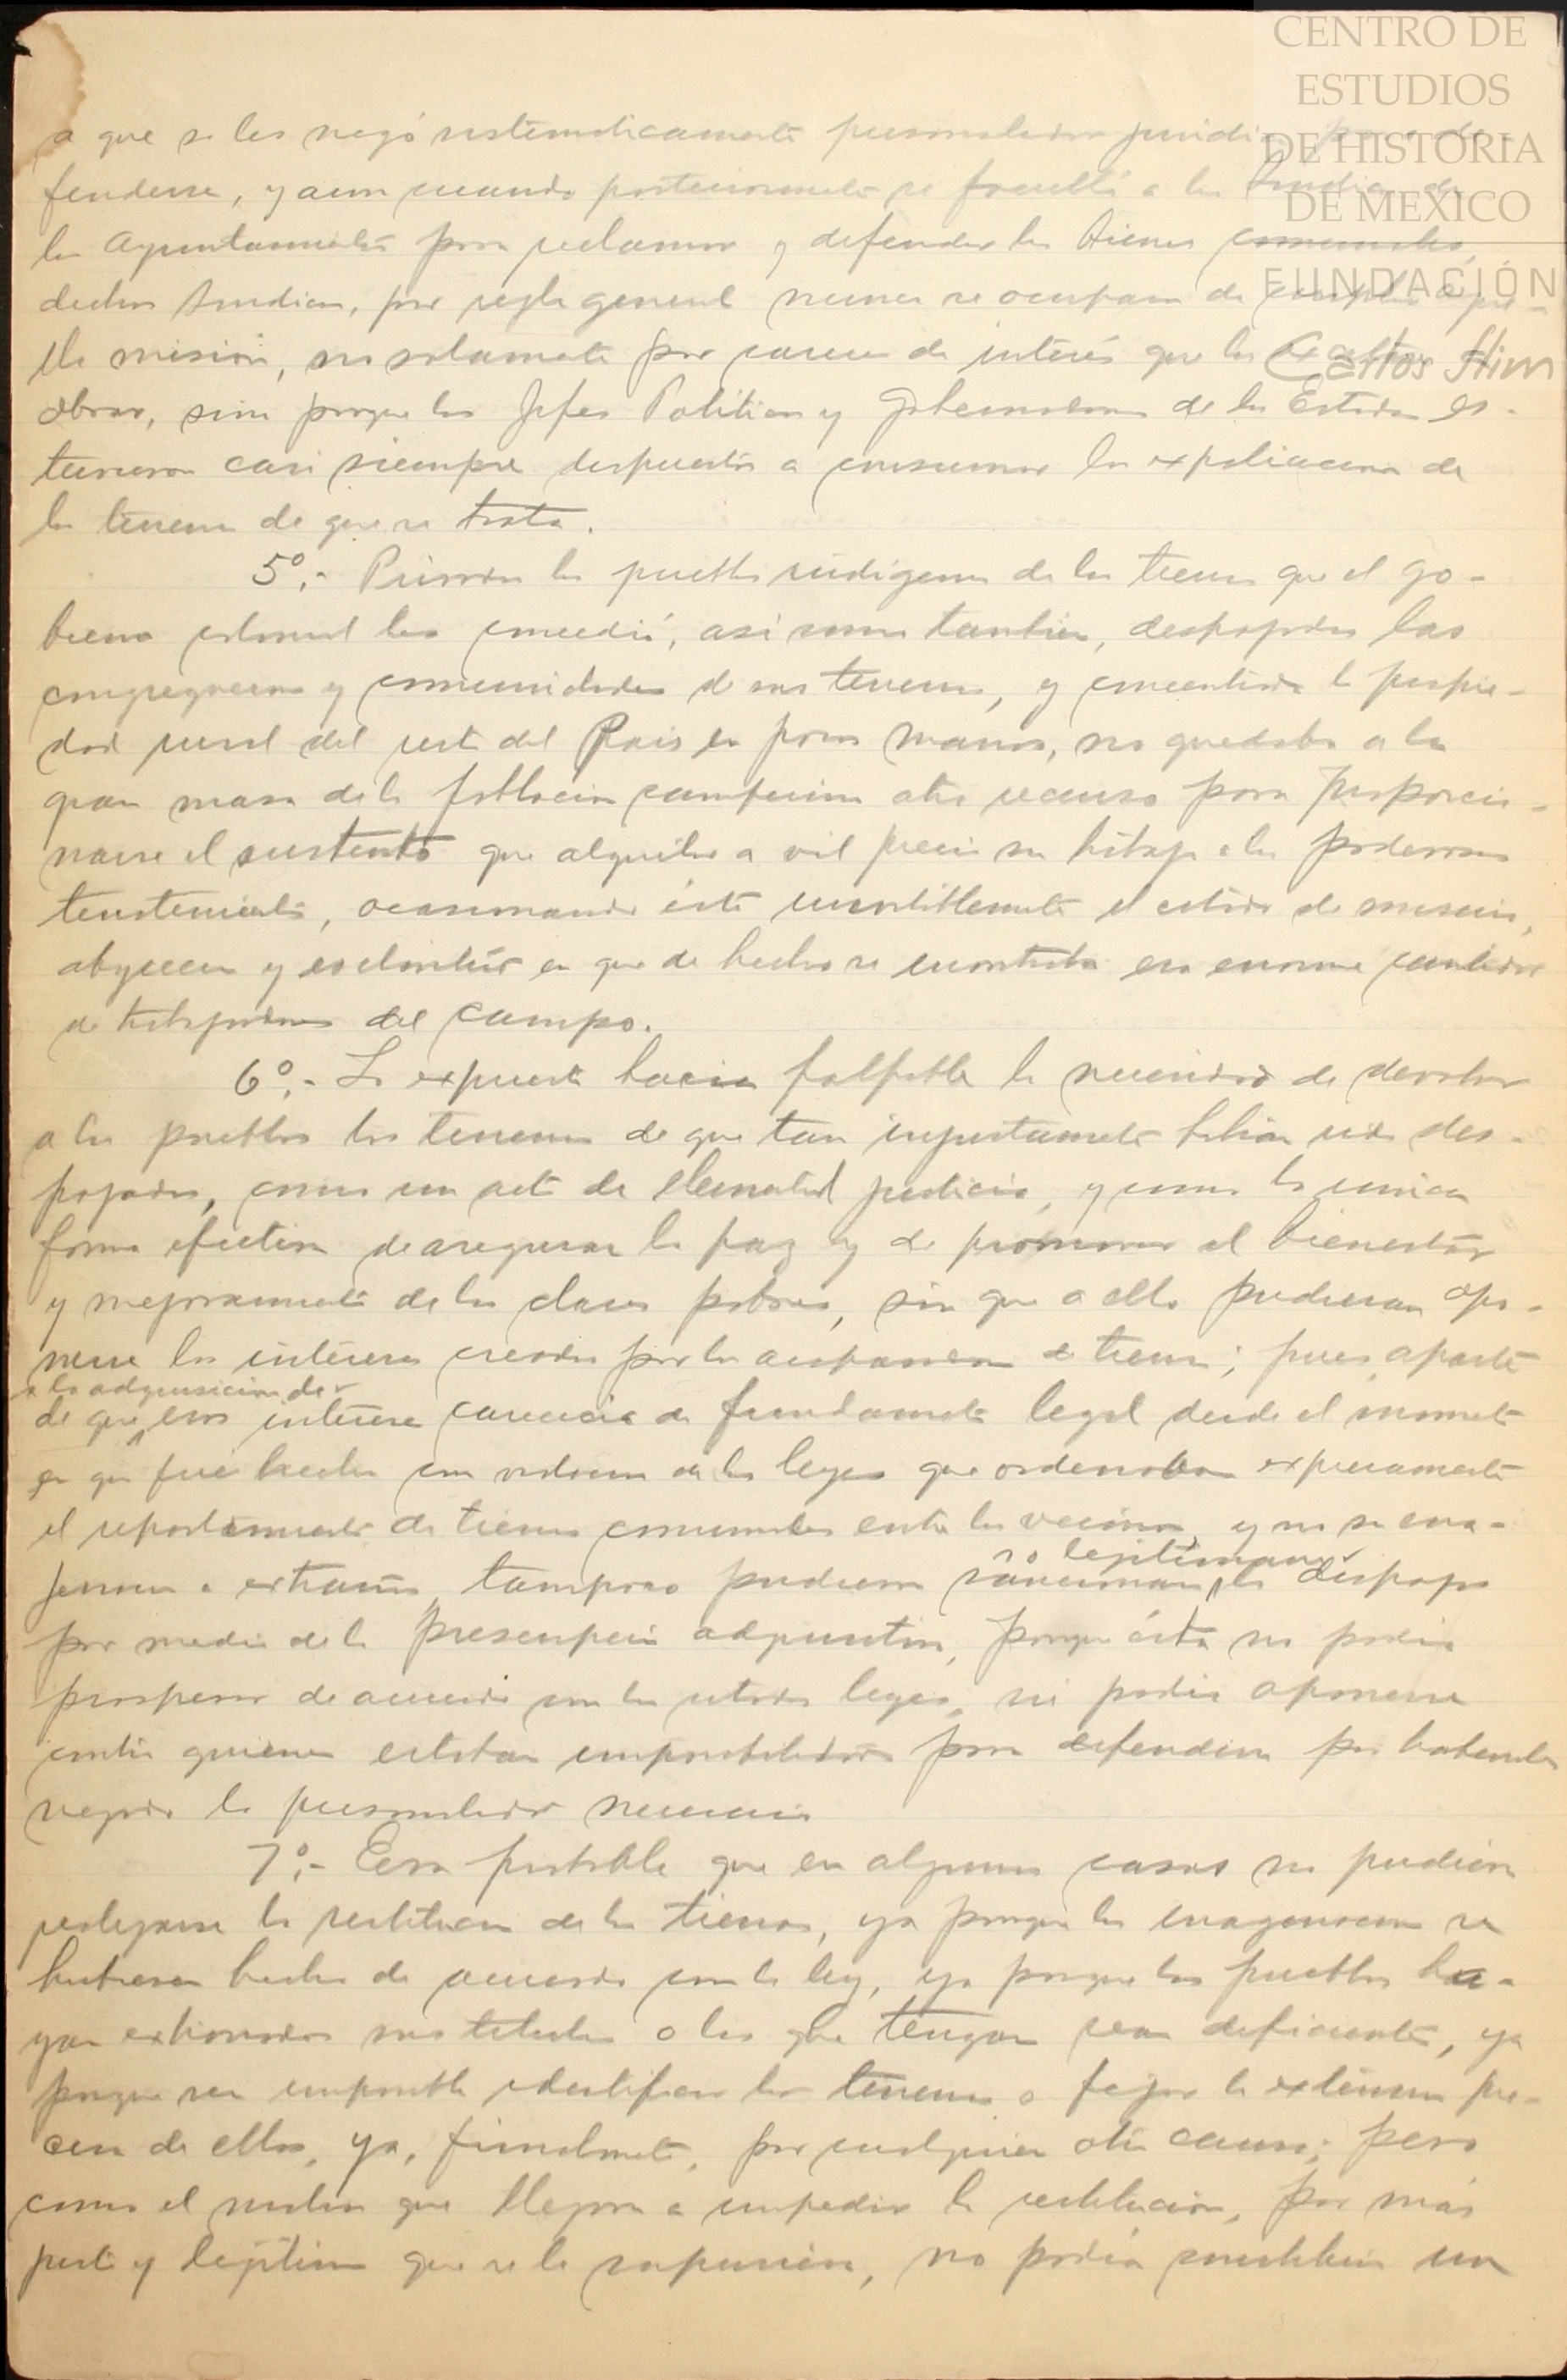 CENTRO DE
ESTUDIOS
DE HISTORIA
DE MEXICO
FUNDACIÓN
Carlos Slim
a que se les negó sistematicamente personalidad juridica para de-
fenderse, y aun cuando posteriormente se facultó a los Sindicos de
los Ayuntamientos para reclamar y defender los bienes comunales,
dichos Sindicos, por regla general nunca se ocuparon de cumplir aque-
lla misión, no solamente por carecer de interés que los excitase a
obrar, sino porque los Jefes Politicos y Gobernadores de los Estados es-
tuvieron casi siempre dispuestos a consumar la expoliacion de
los terrenos de que se trata.
5º.- Privados los pueblos indígenas de las tierras que el go-
bierno colonial les concedió, así como tambien, despojados las
congregaciones y comunidades de sus terrenos, y concentrada la propie-
dad rural del resto del País en pocas manos, no quedaba a la
gran masa de la poblacion campesina otro recurso para proporcio-
narse el sustento que alquilar a vil precio su trabajo a los poderosos
terratenientes, ocasionando ésto inevitablemente el estado de miseria,
abyeccion y esclavitud en que de hecho se encontraba esa enorme cantidad
de trabajadores del campo.
6º.- Lo expuesto hacia palpable la necesidad de devolver
a los pueblos los terrenos de que tan injustamente habian sido des-
pojados, como un acto de elemental justicia, y como la unica
forma efectiva de asegurar la paz y de promover el bienestar
y mejoramiento de las clases pobres, sin que a ello pudieran opo-
nerse los intereses creados por los acaparadores de tierras; pues, aparte
a la adquisicion de
de que esos intereses carecia de fundamento legal desde el momento
en que fué hecha con violacion de las leyes que ordenaban expresamente
el repartimiento de tierras comunales entre los vecinos, y no su ena-
jenacion a extraños, tampoco pudieron sancionar los despojos
so legitimar
por medio de la prescripcion adquisitiva, porque ésta no podia
prosperar de acuerdo con las citadas leyes, ni podia oponerse
contra quienes estaban imposibilitados para defenderse por haberseles
negado la personalidad necesaria
7º.- Era probable que en algunos casos no pudiera
realizarse la restitucion de las tierras, ya porque las enagenaciones se
hubieran hecho de acuerdo con la ley, ya porque los pueblos ha-
yan extraviado sus titulos o los que tengan sean deficientes, ya
porque sea imposible identificar los terrenos o fijar la extension pre-
cisa de ellos, ya, finalmente, por cualquiera otra causa; pero
como el motivo que llegara a impedir la restitución, por más
justo y legitimo que se le supusiera, no podia constituir un